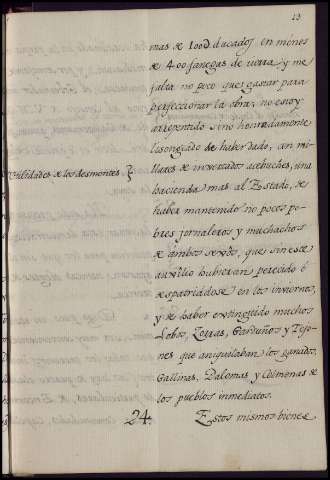 13
mas de 100Ð ducados en menos
de 400 fanegas de tierra y me
falta no poco que gastar para
perfeccionar la obra, no estoy
arrepentido sino honradamente
lisongeado de haber dado, en mi-
llares de inxertados acebuches, una
Utilidades de los desmontes. }
hacienda mas al Estado, de
haber mantenido no pocos po-
bres jornaleros y muchachos
de ambos sexôs, que sin este
auxîlio hubieran perecido ô
despatriadose en los inviernos,
y de haber extinguido muchos
Lobos, Zorras, Garduños y Tejo-
nes que aniquilaban los ganados,
Gallinas, Palomas y Colmenas de
los pueblos inmediatos.
24. Estos mismos biene